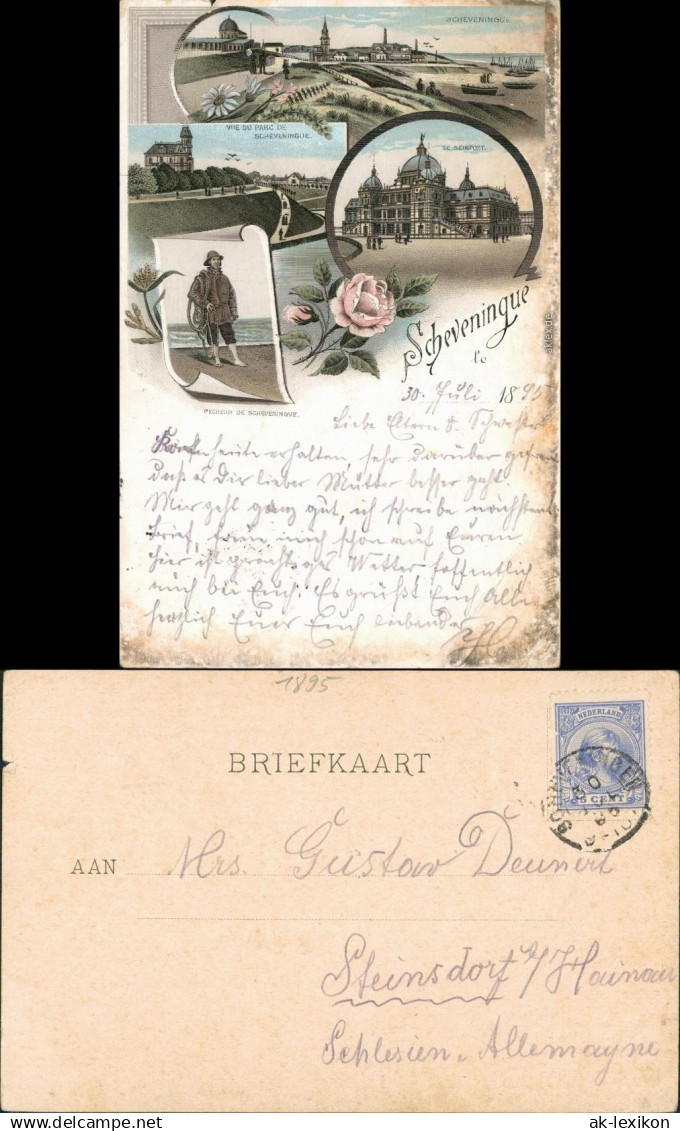 SCHEVENINGUE.
VUE DU PARC DE
SCHEVENINGUE.
LE SEINPOST.
Scheveningue
le
30. Juli 1895
PECHEUR DE SCHEVENINGUE.
Liebe Eltern u. Schwester
heute erhalten, sehr darüber gefreut
daß es Dir lieber Mutter besser geht.
Mir geht ganz gut, ich schreibe nächstens
Brief, freue mich schon auf Euren
hier ist Wetter hoffentlich
auch bei Euch. Es grüßt Euch Alle
herzlich Euer Euch liebender
1895
BRIEFKAART
NEDERLAND
5 CENT
AAN Mrs. Gustav Deunert
Steinsdorf a/Hainau
Schlesien. Allemagne
aklex.de
www.delcampe.net
ak-lexikon